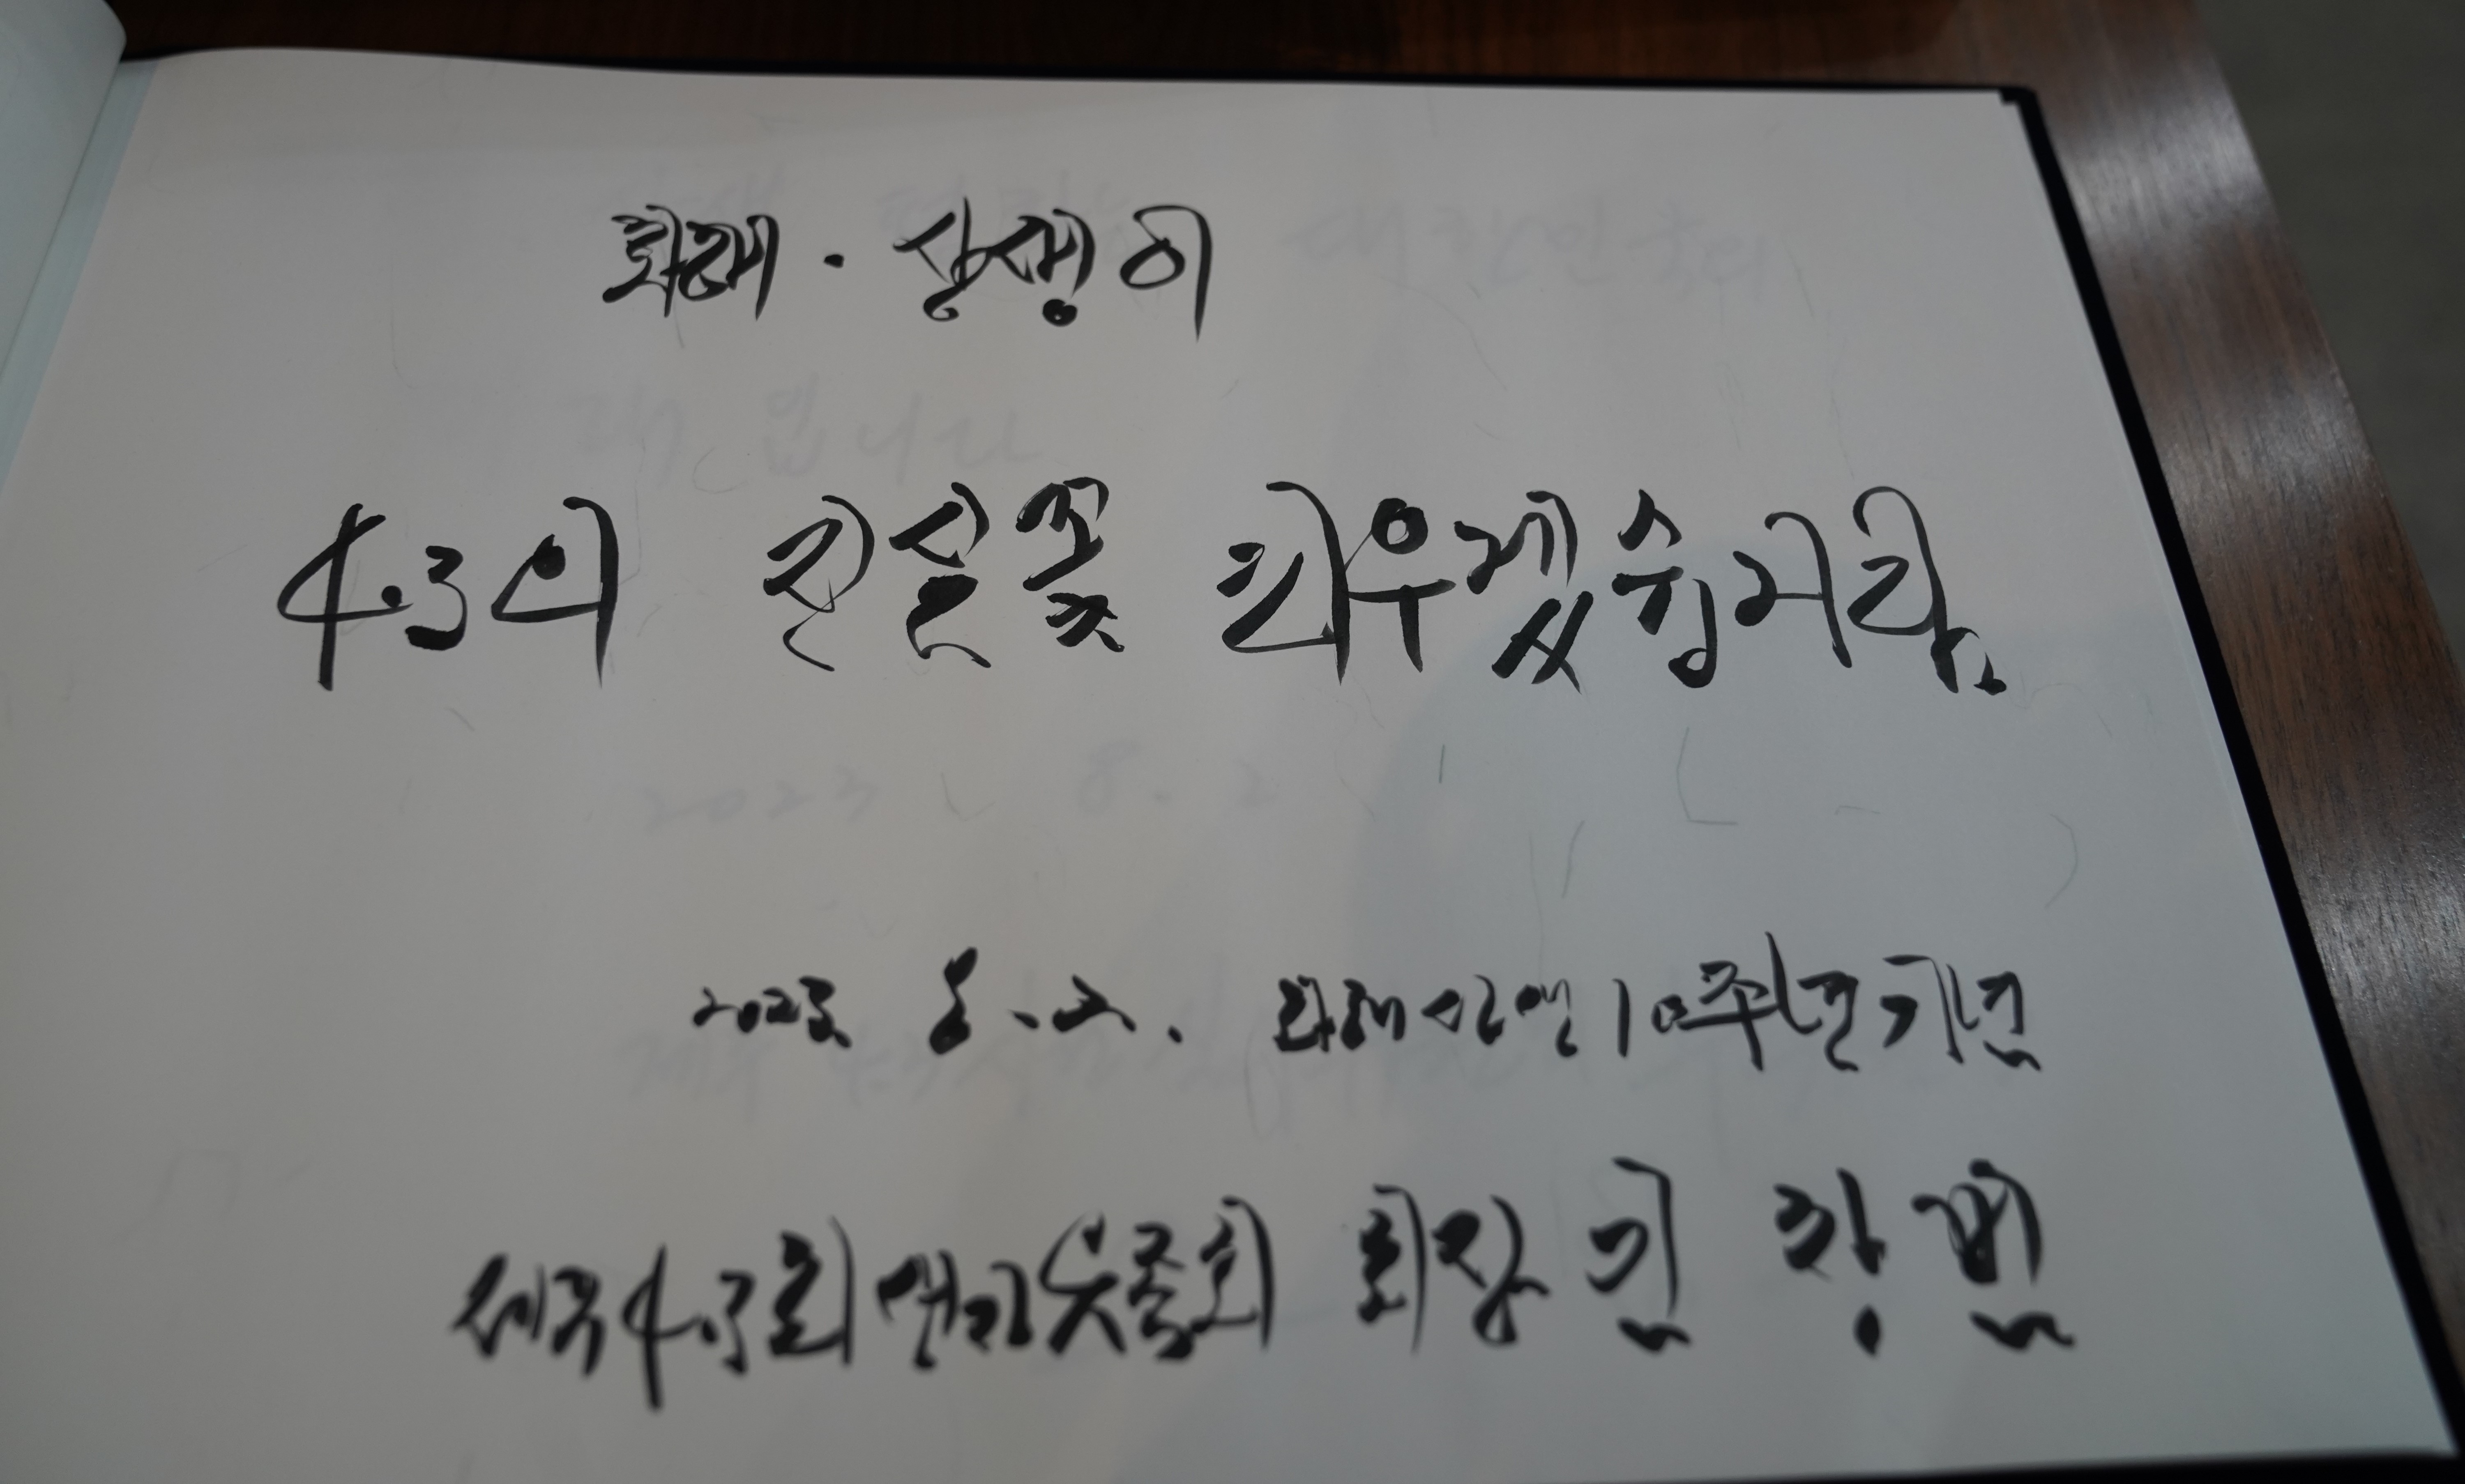 화해·상생이
4.3의 진실꽃 피우겠습니다.
2023. 8. 2. 화해상생10주년기념
제주4.3희생자유족회 회장 김창범